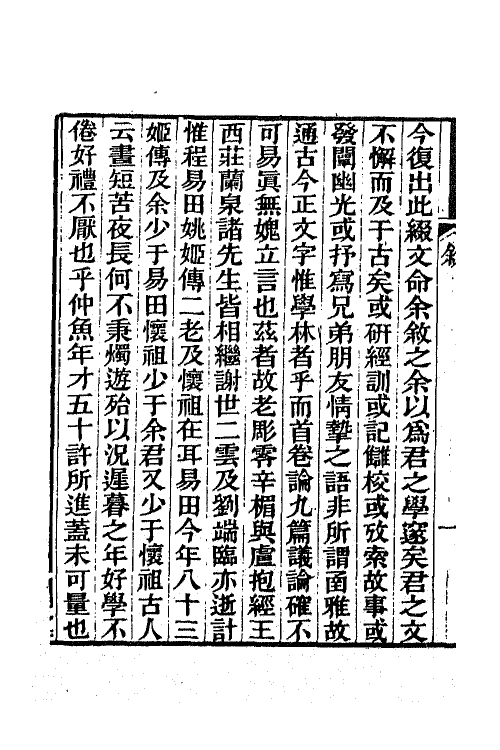 今復出此綴文命余敘之余以爲君之學邃矣君之文
不懈而及于古矣或硏經訓或記讎校或攷索故事或
發闡幽光或抒寫兄弟朋友情摯之語非所謂函雅故
通古今正文字惟學林者乎而首卷論九篇議論確不
可易眞無媿立言也茲者故老彫零辛楣與盧抱經王
西莊蘭泉諸先生皆相繼謝世二雲及劉端臨亦逝計
惟程易田姚姬傳二老及懷祖在耳易田今年八十三
姬傳及余少于易田懷祖少于余君又少于懷祖古人
云晝短苦夜長何不秉燭遊殆以況遲暮之年好學不
倦好禮不厭也乎仲魚年才五十許所進蓋未可量也